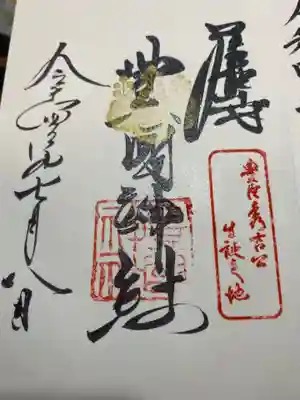 奉拝
豊臣秀吉公
生誕之地
豊國神社
令和 年七月八日